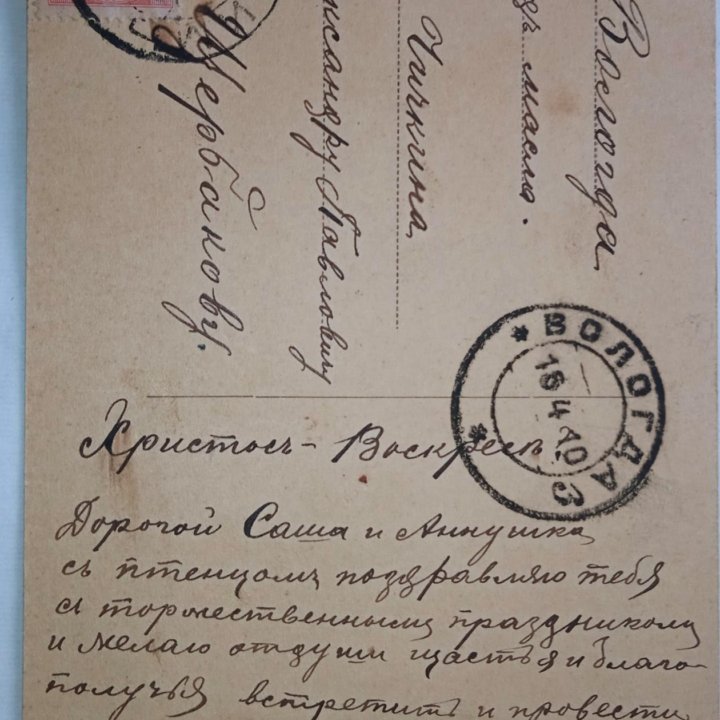 Вологда
маслъ.
Чичкина
Павловичу
Щербакову.
ВОЛОГДА
18 4 10
3
Христосъ - Воскресъ
Дорогой Саша и Аннушка
съ птенцомъ поздравляю тебя
съ торжественнымъ праздникомъ
и желаю отдуши щастья и благо-
получья встретить и провести